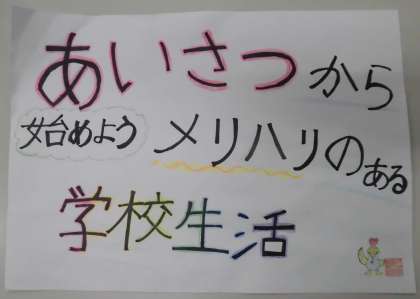 あいさつから
始めよう メリハリのある
学校生活